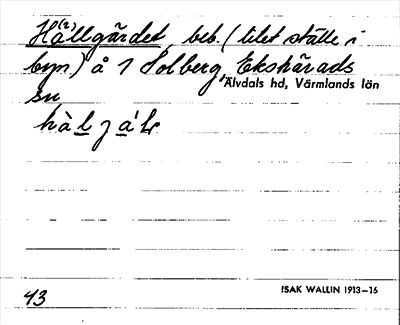 Hå(2)llgärdet beb. (litet ställe i
byn) å 1 Solberg, Ekshärads
Älvdals hd, Värmlands län
sn
43
ISAK WALLIN 1913–16